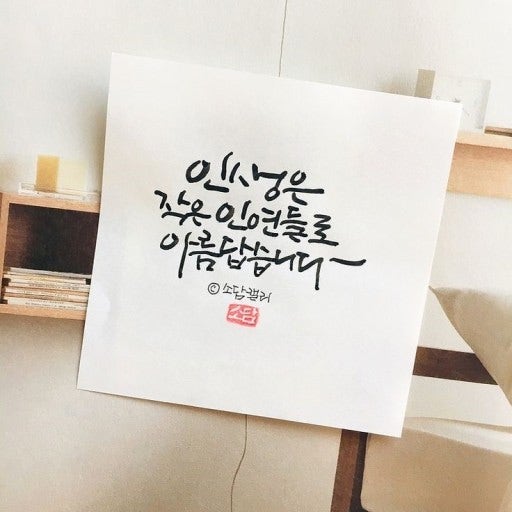 인생은
작은 인연들로
아름답습니다~
© 소담캘리
소담